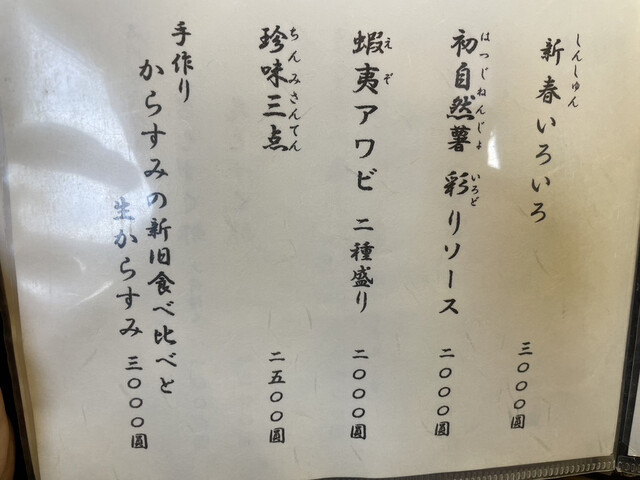 新春いろいろ 三〇〇〇圓
しんしゅん
初自然薯 彩りソース 二〇〇〇圓
はつじねんじょ いろど
蝦夷アワビ 二種盛り 二〇〇〇圓
えぞ
珍味三点 二五〇〇圓
ちんみさんてん
手作り
からすみの新旧食べ比べと
生からすみ 三〇〇〇圓